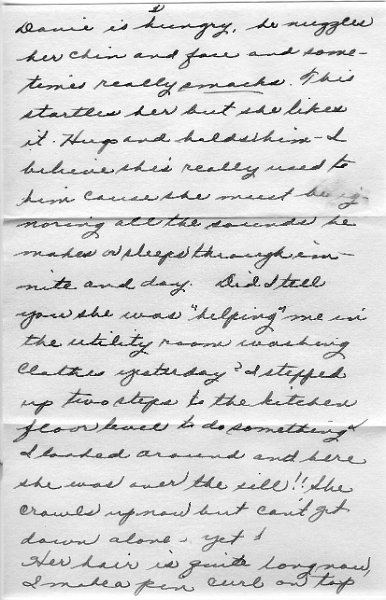 Davie is hungry, he nuzzles
her chin and face and some-
times really smacks. This
startles her but she likes
it. Hugs and holds him - I
believe she's really used to
him cause she must be ig-
noring all the sounds he
makes or sleeps through im-
nite and day. Did I tell
you she was "helping" me in
the utility room washing
clothes yesterday? I stepped
up two steps to the kitchen
floor level to do something &
I looked around and here
she was over the sill!! She
crawls up now but can't get
down alone - yet!
Her hair is quite long now,
I make a pin curl on top